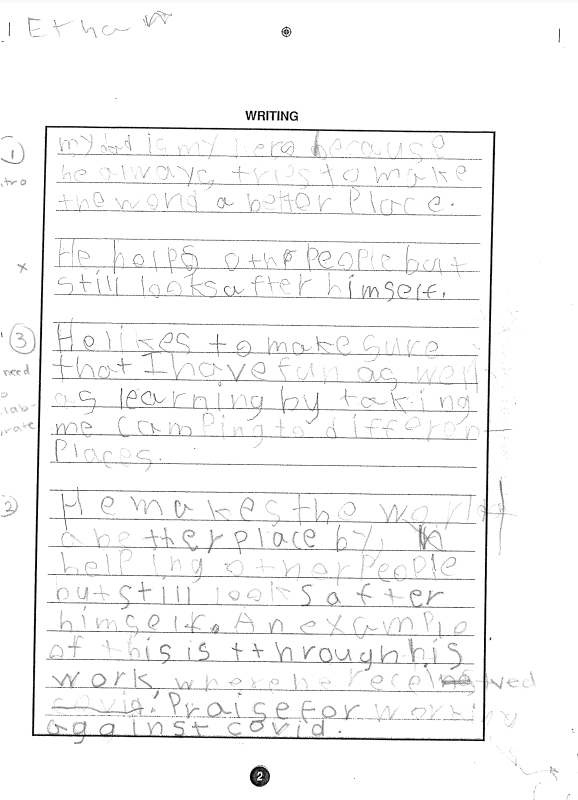 Ethan
WRITING
1
my dad is my hero because
tro
he always tries to make
the world a better Place.
He helps other People but
x
still looks after himself.
3
He likes to make sure
need
that I have fun as well
as learning by taking
lab-
me camping to different
rate
Places.
2
He makes the world
a better place by
helping other People
but still looks after
himself. An example
of this is tthrough his
work where he received
covid. Praise for working
against covid.
2